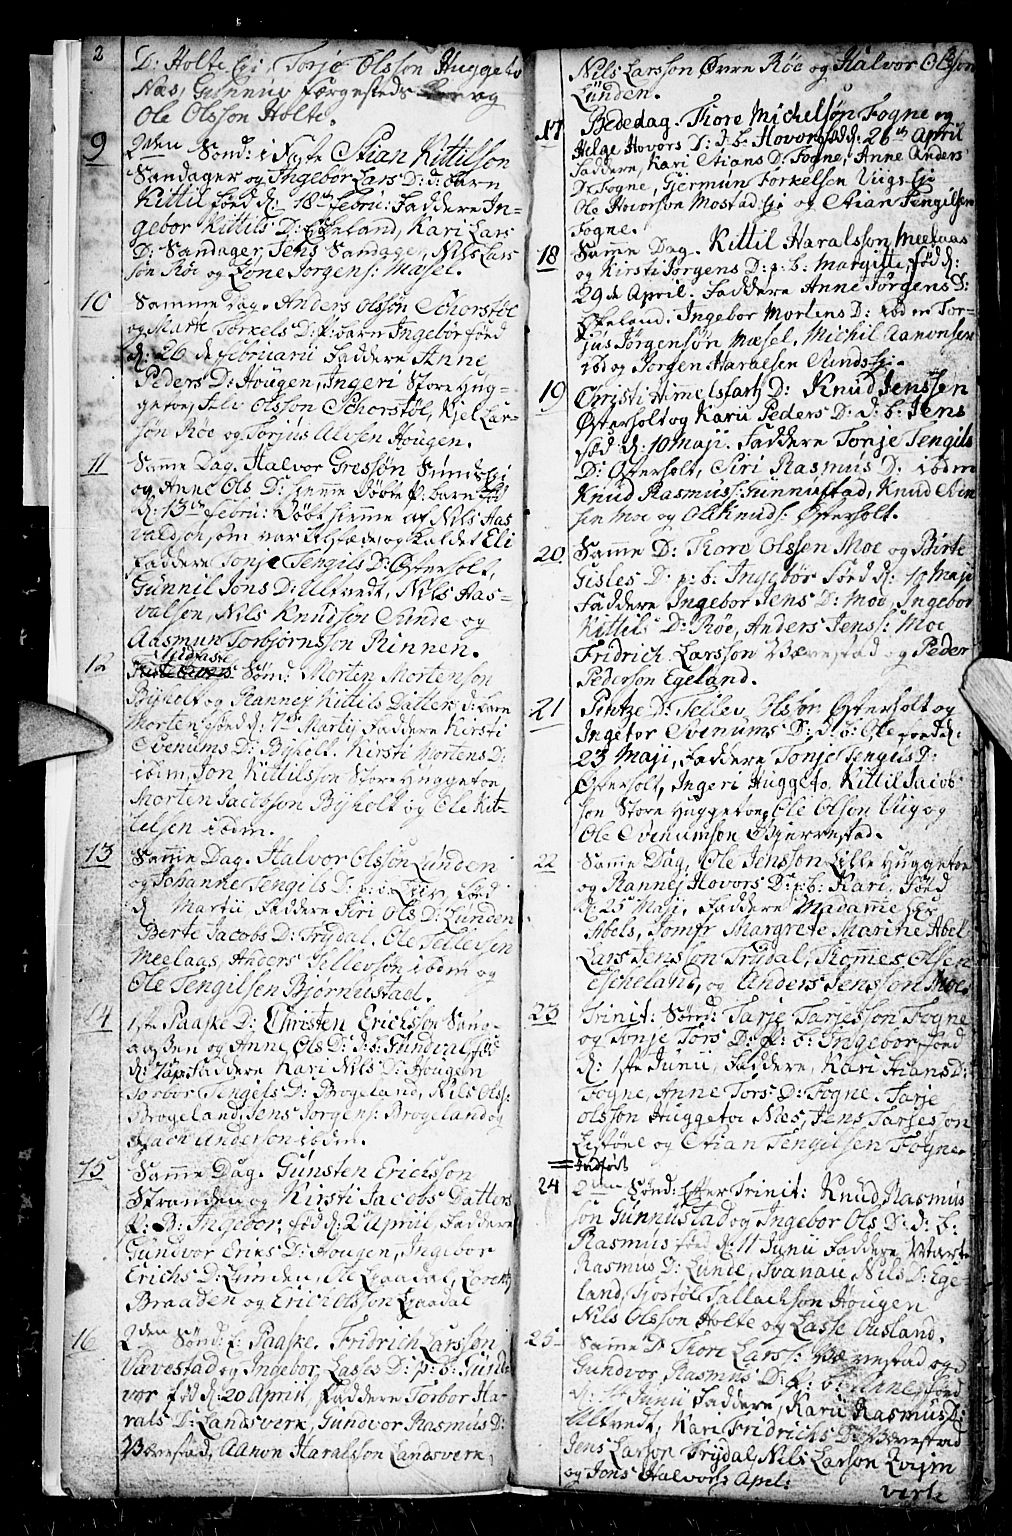 2
D: Holte Eje, Torje Olsson Huggeto
Næs, Gunnuo Færgesteds og
Ole Olsson Holte.
9 2den Sønd: i Faste Stian Kittilson
Sandager og Ingebor Lars D: d: barn
Kittil født d: 18de Febru: Faddere In-
gebor Kittils D: Egeland, Kari Lars
D: Sandager, Jens Sandager, Nils Lars
søn Røe og Lone Jørgens: Mæsel.
10 Samme Dag. Anders Olssøn Schorstøl
og Marte Torkels D: p: barn Ingebor fød
d: 26 de februarii Faddere Anne
Peders D: Hougen, Ingeri Store Hug-
getoe, Alv Olsson Schorstøl, Kjel Lar-
søn Røe og Torjus Alfsen Hougen.
11 Samme Dag. Halvor Gressøn Sundseje
og Anne Ols D: hjemme døbte p: barn født
d: 13de febru: Døbt hjemme af Nils Has
valdsen, som var tilstæde, og kaldet Eli
Faddere Tonje Tengils D: Østerholt,
Gunnil Jons D: Ulfvedt, Nils Has-
valsen, Nils Knudsen Sunde og
Aasmun Torbjørnsson Rinnen.
12 Midfaste
Sønd: Morten Mortenson
Bijholt og Ranney Kittils Datter d: barn
Morten født d: 7de Martij Faddere Kirsti
Svenums D: Bijholt, Kirsti Mortens D:
ibidm, Jon Kittilsson Store Huggetoe
Morten Jacobson Bijholt og Ole Kit-
telsen ibdm.
13 Samme Dag. Halvor Olsson Lunden
og Johanne Tengils D: p: b: født
d: Martii Faddere Siri Ols D: Lunden
Berte Jacobs D: Trydal, Ole Tellefsen
Meelaas, Anders Tellevsøn ibdm og
Ole Tengilsen Bjørnustad.
14 1ste Paaske D: Christen Ericksson Sang-
aasen og Anne Ols D: d: b: Gundval, fød
d: 7 Apr: Faddere Kari Nils D: Hougen
Torbor Tengils D: Brogeland, Nils Ols:
Brogeland, Jens Jørgens: Brogeland og
Isach Anderson ibdm.
15 Samme Dag. Gunsten Ericksson
Stranden og Kirsti Jacobs Datters
p: B: Ingebor, fød d: 2de April, Faddere
Gundvor Eriks D: Hougen, Ingebor
Erichs D: Lunden, Ole Lyadal, Lorents
Braaden og Erich Olsson Lyadal
16 2den Sønd: p: Paaske. Fridrich Larsson
Vævestad og Ingebor Lasses D: p: b: Gund-
vor fød d: 20 April, Faddere Torbor Ha-
ralds D: Landsverk, Gundvor Rasmus D:
Værestad, Aanon Haralsson Landsverk,
3
Nils Larsson Øvre Røe og Halvor Olsson
Lunden.
17 Bededag. Thore Michelsøn Fogne og
Helge Hovors D: d: b: Hovor, fød d: 26de April
Faddere, Kari Stians D: Fogne, Anne Anders
D: Fogne, Germun Torkelsen Viigs Eje
Ole Hovorson Mostad Eje og Stian Tengilsen
Fogne.
18 Samme Dag. Kittil Haralsson Meelaas
og Kirsti Jørgens D: p: b: Margitte, fød d:
29 de April. Faddere Anne Jørgens D:
Egeland. Ingebor Mortens D: ibdem Tor-
jus Jørgensøn Mæsel, Michil Aanonsen
ibd og Jørgen Haralsen Sunds Eje.
19 Christi Himelsfarts D: Knud Jenssen
Østerholt og Kari Peders D: d: b: Jens
fød d: 10 Maji. Faddere Tonje Tengils
D: Østerholt, Siri Rasmus D: ibdm
Knud Rasmuss: Gunnustad, Knud Sven
sen Moe og Ole Knuds: Østerholt.
20 Samme D: Thore Olssen Moe og Birte
Gisles D: p: b: Ingebør fød d: 10 Maji
Faddere Ingebor Jens D: Moe, Ingebor
Kittils D: Røe, Anders Jenss: Moe
Fridrich Larsson Værestad og Peder
Pederson Egeland.
21 Pintze D: Tellev Olsson Østerholt og
Ingebor Svenums D: d: b: Ole fød d:
23 Maji, Faddere Tonje Tengels D:
Østerholt, Ingeri Huggeto, Kittil Jacob
son Store Huggetoe, Ole Olson Viig og
Ole Svenumson Bjerrestad.
22 Samme Dag, Ole Jensson Lille Huggetoe
og Rannej Hovors D: p: b: Kari, Fød
d: 25 Maji, Faddere Madamme Sr
Abels, Jomfr Margrete Marine Abel
Lars Jensson Trydal, Thomes Olsen
Escheland, og Anders Jensson Moe.
23 Trinit: Sønd: Tarje Tarjesson Fogne
og Tonje Tors D: p: b: Ingebor, fød
d: 1ste Junii, Faddere, Kari Stians D:
Fogne, Anne Tors D: Fogne. Tarje
Olsson Huggetoe Næs, Jens Tarjesson
Listøel og Stian Tengilsen Fogne.
24 2den Sønd: Efter Trinit: Knud Rasmus
søn Gunnustad og Ingebor Ols D: d: b:
Rasmus fød d: 11 Junii Faddere, Marte
Rasmus D: Lunde, Svanau Nils D: Ege-
land, Tjøstøle Tallachson Hougen
Nils Olsson Holte og Lasse Ousland.
25 Samme D: Thore Larss: Værestad og
Gundvor Rasmus D: p: b: Anne, fød
d: Junii Faddere, Kari Rasmus D:
Ulfvedt, Kari Fridrichs D: Værestad
Jens Larson Trydal, Nils Larson
og Jens Halvors: Apel:
verte